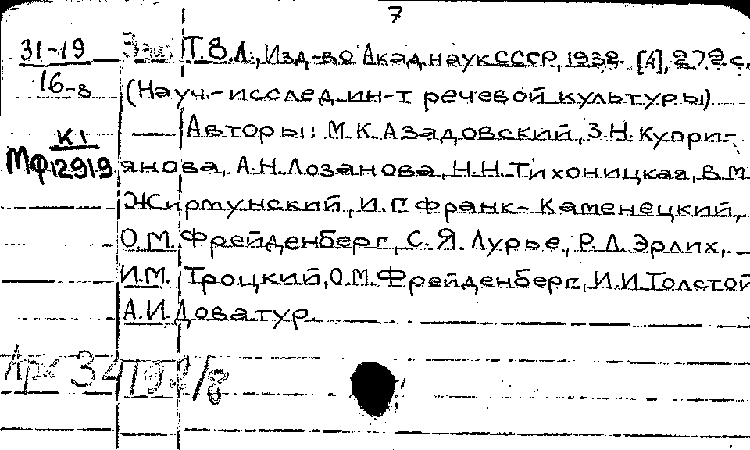 7
31-19 Экз. Т.В.Л., Изд-во Акад. наук СССР, 1932. [4], 272 с.
16-8 (Науч.-исслед. ин-т речевой культуры)
К1 Авторы: М.К.Азадовский, З.Н.Куприя-
МФ 12919 янова, А.Н.Лозанова, Н.Н.Тихоницкая, В.М.
Жирмунский, И.Г.Франк-Каменецкий,
О.М.Фрейденберг, С.Я.Лурье, Р.Л.Эрлих,
И.М.Троцкий, О.М.Фрейденберг, И.И.Толстой
А.И.Доватур.
Арх 34192/8